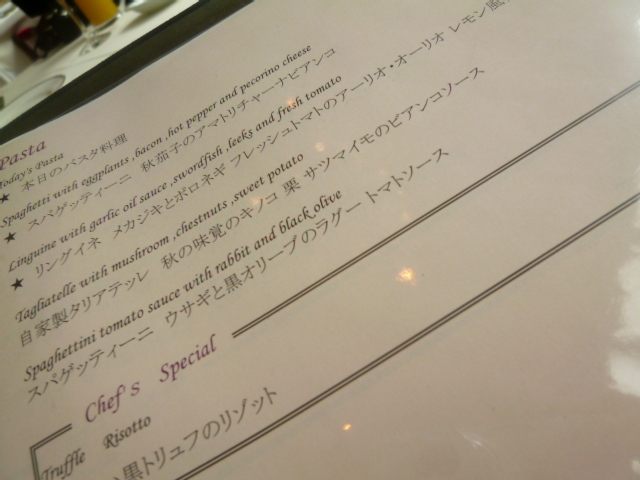 Pasta
Today's Pasta
★ 本日のパスタ料理
Spaghetti with eggplants ,bacon ,hot pepper and pecorino cheese
★ スパゲッティーニ 秋茄子のアマトリチャーナビアンコ
Linguine with garlic oil sauce ,swordfish ,leeks and fresh tomato
★ リングイネ メカジキとポロネギ フレッシュトマトのアーリオ・オーリオ レモン風
Tagliatelle with mushroom ,chestnuts ,sweet potato
自家製タリアテッレ 秋の味覚のキノコ 栗 サツマイモのビアンコソース
Spaghettini tomato sauce with rabbit and black olive
スパゲッティーニ ウサギと黒オリーブのラグー トマトソース
Chef's Special
Truffle Risotto
黒トリュフのリゾット